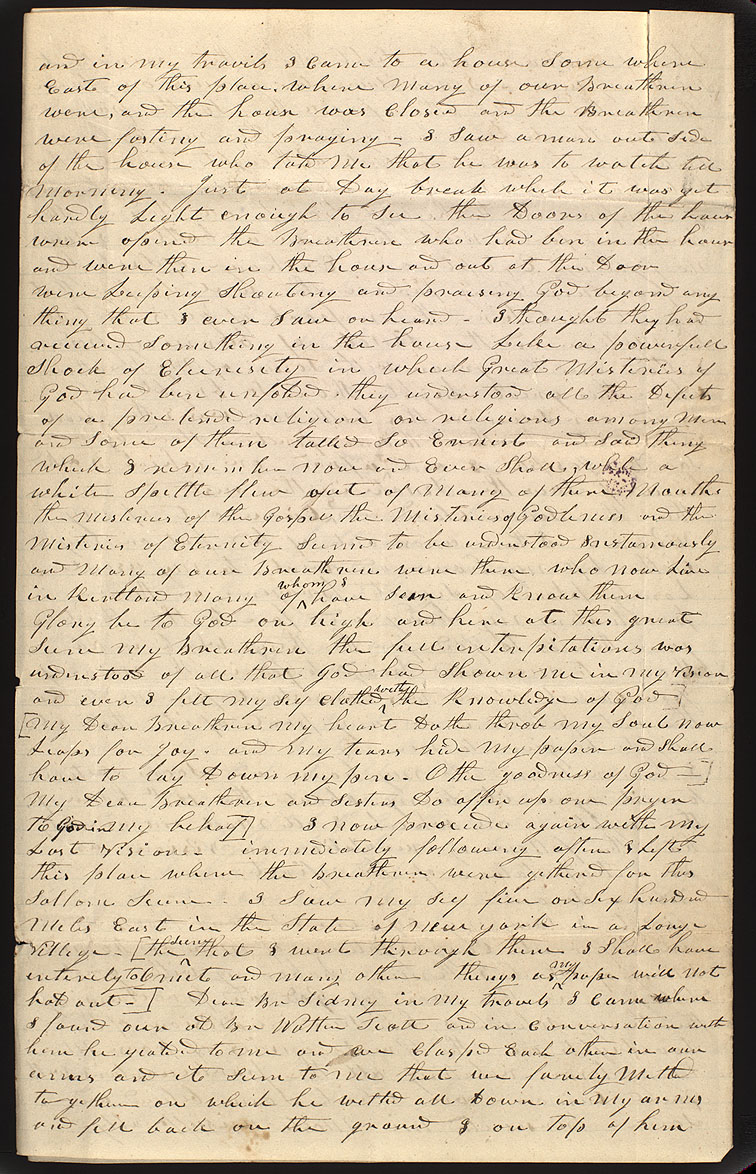 and in my travils I Came to a house Some where
East of this place. where Many of our Breathren
were, and the house was Closed and the Breathren
were fasting and praying - I Saw a man out Side
of the house who told Me that he was to watch till
Morning. Just at Day break which it was yet
hardly Light enough to See the Doors of the hous
were opened the Breathren who had ben in the hous
and were then in the house and out at the Door
were Leeping Shouting and praising God beyond any
thing that I ever Saw or heard - I thought they had
received Something in the house Like a powerfull
Shock of Eternisity in which Great Misteries of
God had ben unfolded they understood all the Defects
of a pretended religion or religions among Men
and Some of them talked So Ernest and Said things
which I remember Now and Ever Shall, while a
white Spittle flew out of Many of there Mouths
the misteries of the Gospel the Misteries of Godliness and the
Misteries of Eternity Seemd to be understood Instamously
and Many of our Breathren were there who now Live
in Kirtland Many of whom I have Seen and Know them
Glory be to God on high and here at this great
Seene My Breathren the full interpitations was
understood of all that God had Shown me in my Vision
and even I felt my Self Clothed with the Knowledge of God]
[My Dear Breathren My heart Doth throb my Soul now
Leaps for Joy. and My tears hide My paper and Shall
have to lay Down my pen - O the goodness of God -]
My Dear Breathren and Sisters Do offer up one prayer
to God in My behalf] I now procede again with my
Last Vision immediately following after I Left
this place where the Breathren were gethered for this
Sollom Seene - I Saw my Self five or Six hundred
Miles East in the State of New york in a Large
Villege - [the Seeny that I went through there I Shall have
entirely to omit and many other things as my paper will not
hold out -] Dear Br Sidney in My travels I Came where
I found our old Br Wotter Scott and in Conversation with
him he yealded to me and we Clasped Each other in our
arms and it Seem to me that we fairly Melted
to gether on which he wilted all Down in My arms
and fell back on the ground & I on top of him